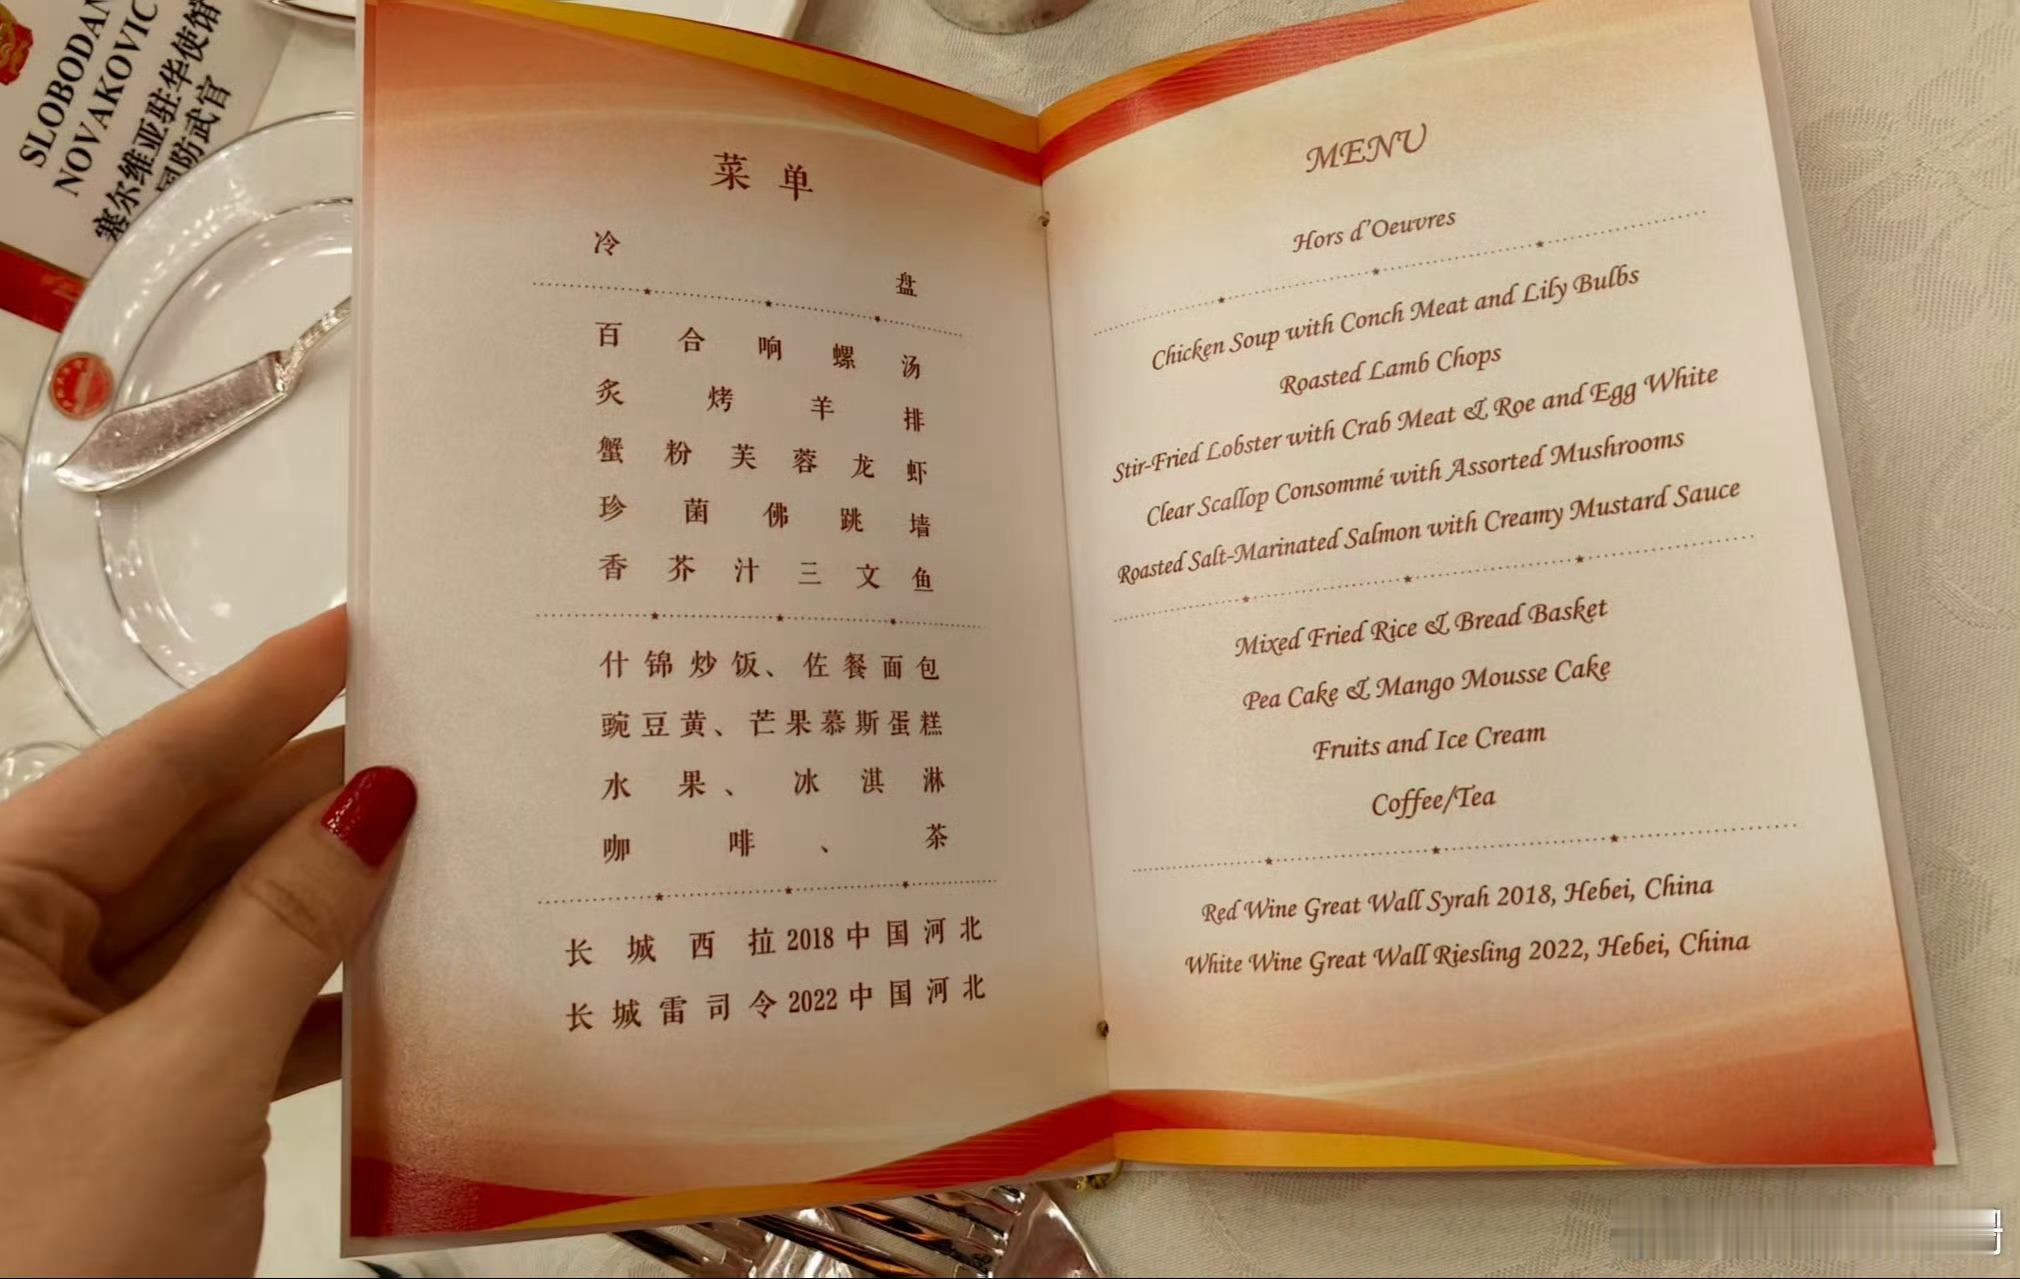 SLOBODAN
NOVAKOVIC
塞尔维亚驻华使馆
国防武官
菜单
冷盘
百合响螺汤
炙烤羊排
蟹粉芙蓉龙虾
珍菌佛跳墙
香芥汁三文鱼
什锦炒饭、佐餐面包
豌豆黄、芒果慕斯蛋糕
水果、冰淇淋
咖啡、茶
长城西拉2018中国河北
长城雷司令2022中国河北
MENU
Hors d'Oeuvres
Chicken Soup with Conch Meat and Lily Bulbs
Roasted Lamb Chops
Stir-Fried Lobster with Crab Meat & Roe and Egg White
Clear Scallop Consommé with Assorted Mushrooms
Roasted Salt-Marinated Salmon with Creamy Mustard Sauce
Mixed Fried Rice & Bread Basket
Pea Cake & Mango Mousse Cake
Fruits and Ice Cream
Coffee/Tea
Red Wine Great Wall Syrah 2018, Hebei, China
White Wine Great Wall Riesling 2022, Hebei, China